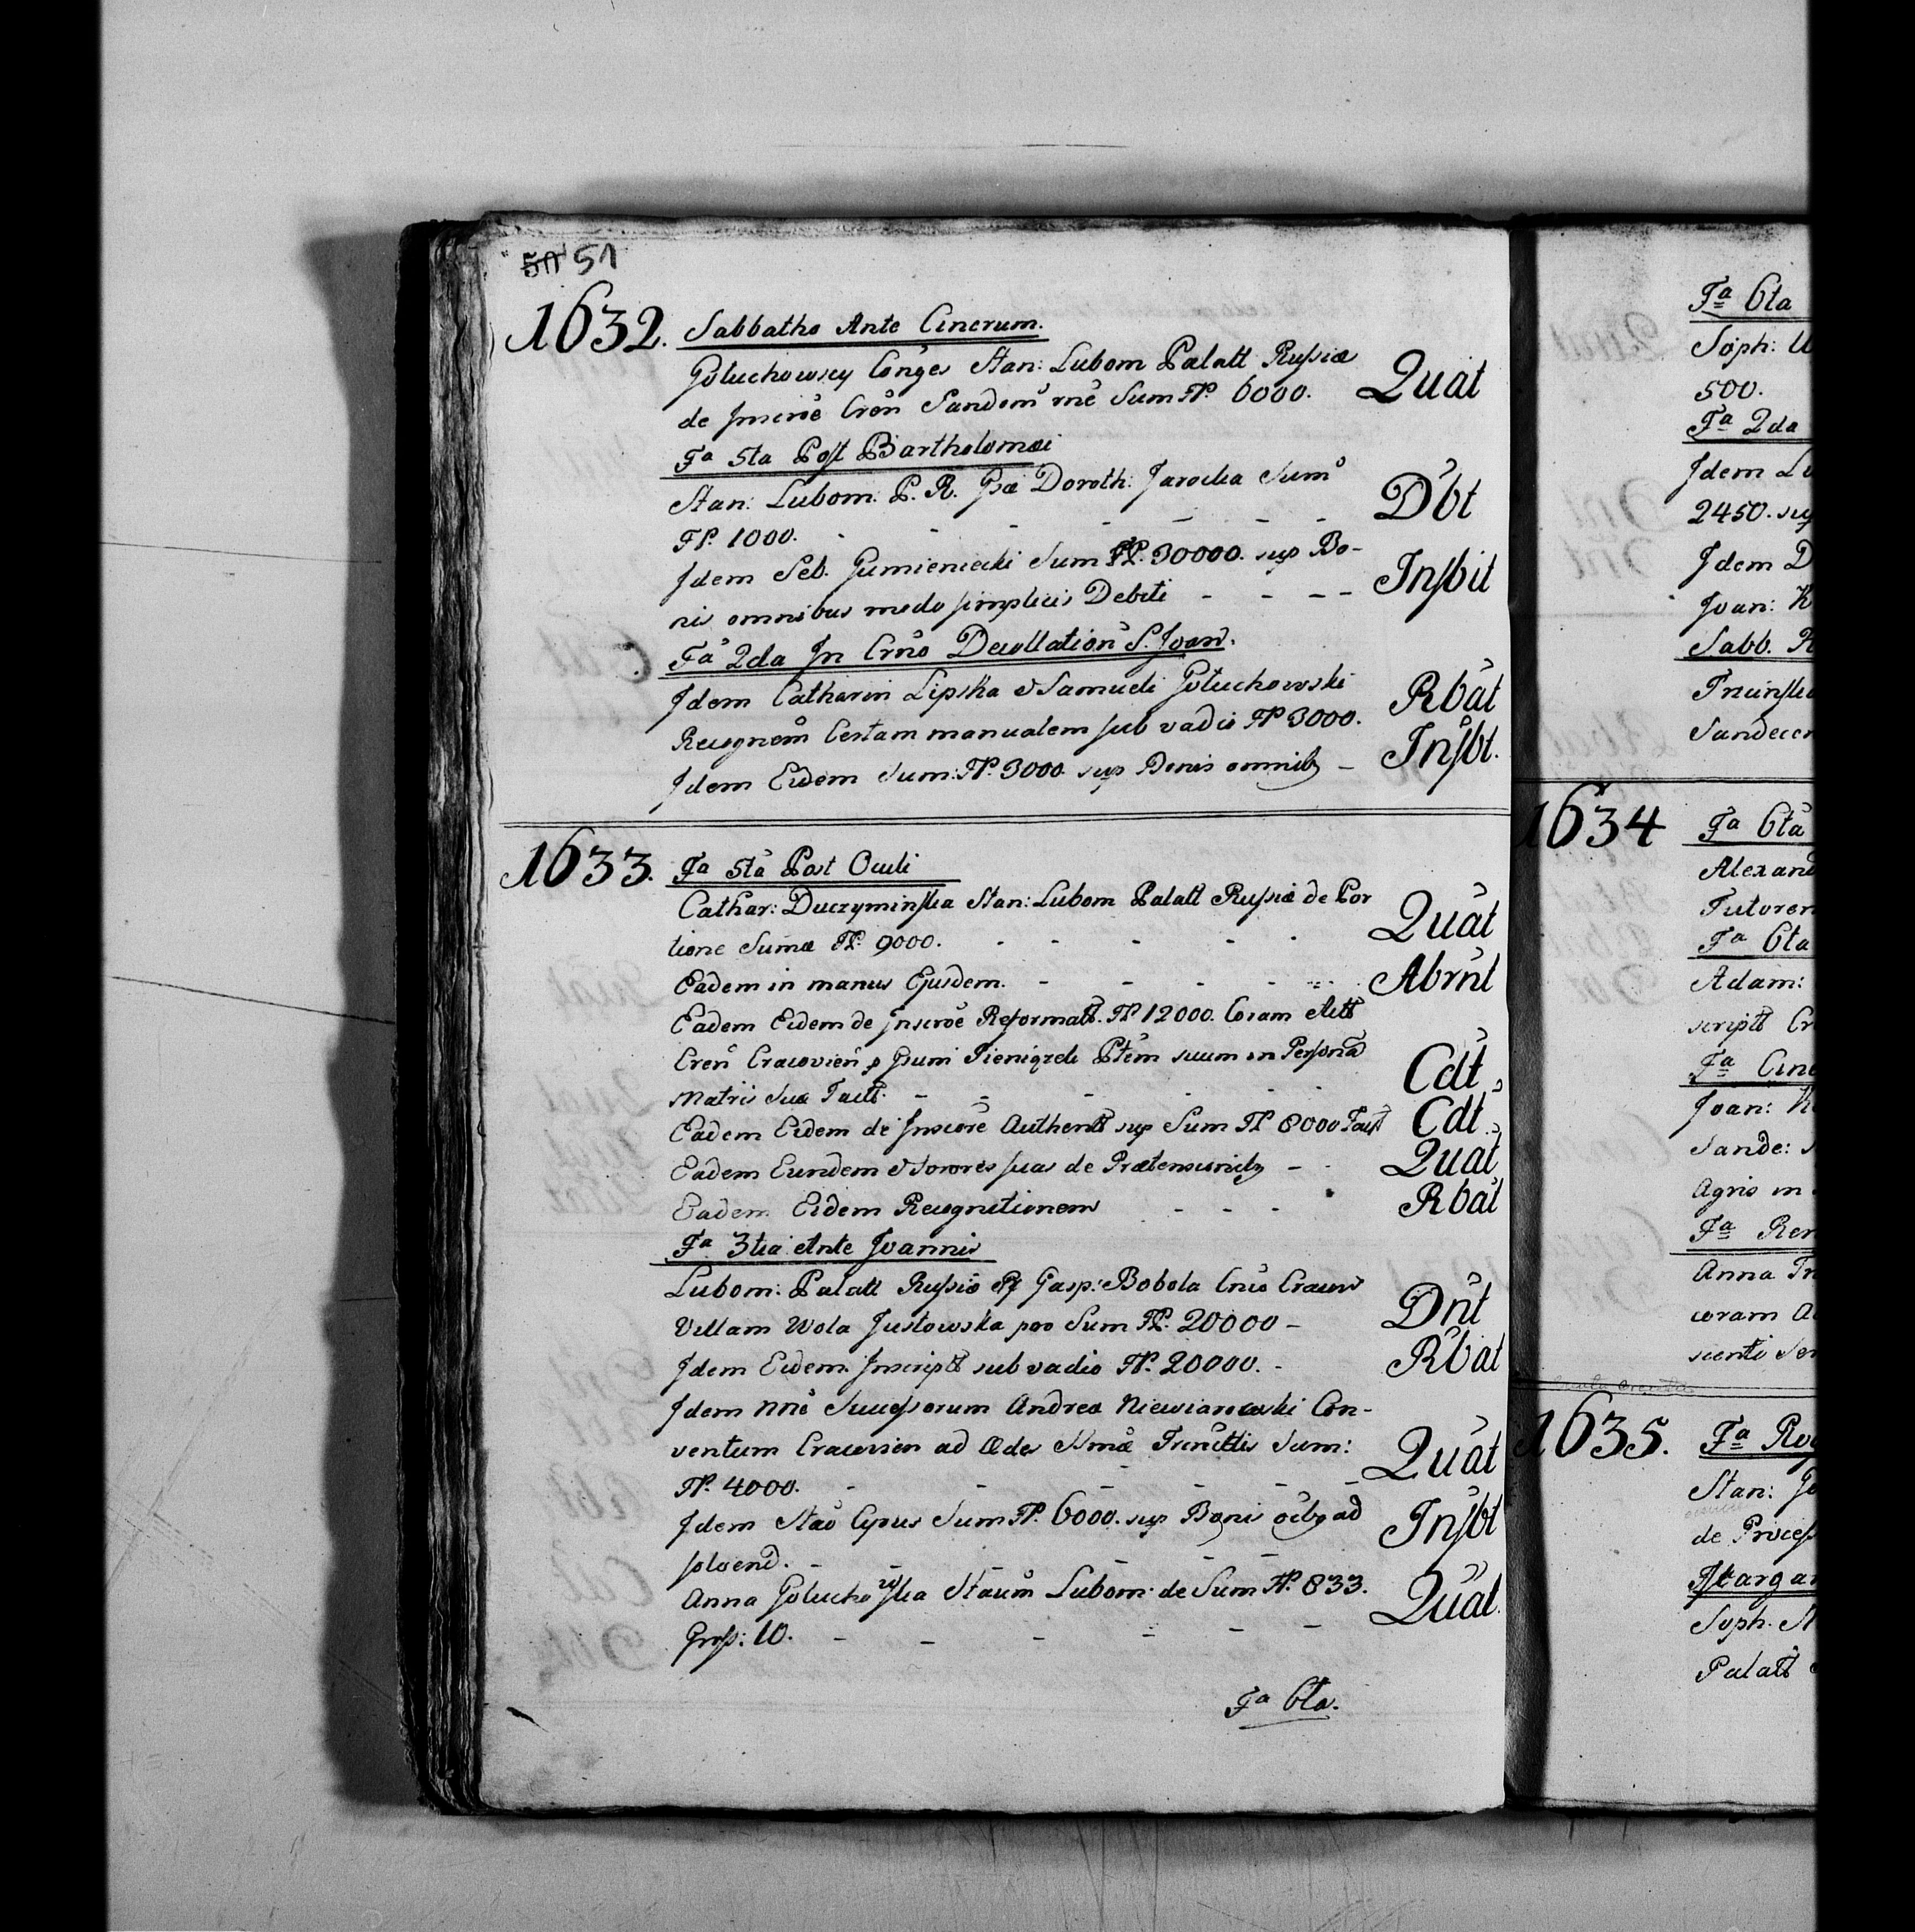 51
1632. Sabbatho Ante Cinerum.
Gołuchowscy Conges Stan: Lubom Palatt Russiæ Quat
de Inscroe Cren Sandom rne Sum FP. 6000.
Fa 5ta Post Bartholomæi
Stan: Lubom: P. R. Gsæ Doroth: Jarocka Sum Dbt
FP. 1000.
Idem Seb. Gumieniecki Sum FP. 30000. sup Bo- Insbit
nis omnibus modo simplicis Debiti
Fa 2da In Crno Decollation S. Joan.
Idem Catharin Lipska & Samueli Gołuchowski Rbat
Recognem Certam manualem sub vadio FP 3000.
Idem Eidem Sum: FP. 3000. sup Bonis omnib9 Insbt.
1633. Fa 5ta Post Oculi
Cathar: Duczyminska Stan: Lubom Palatt Russiæ de Por
tione Sumæ FP. 9000. Quat
Eadem in manus Ejusdem. Abrnt
Eadem Eidem de Inscroe Reformatt. FP 12000. Coram Actt
Cren Cracovien p Gsum Pieniązek Ptem suum in Persona
Matris Suæ Factt. Cdt
Eadem Eidem de Inscroe Authentt sup Sum FP 8000 Fact Cdt
Eadem Eundem & Sorores suas de Prætensionib9 Quat
Eadem Eidem Recognitionem Rbat
Fa 3tia Ante Joannis
Lubom: Palatt Russiæ Gasp: Bobola Cnco Cracov
Villam Wola Justowska pro Sum FP. 20000 Dnt
Idem Eidem Inscriptt sub vadio FP. 20000. Rbat
Idem nne Successorum Andreæ Niewiarowski Con-
ventum Cracovien ad Ædes SSmæ Trinittis Sum: Quat
FP. 4000.
Idem Stao Cipus Sum FP. 6000. sup Bonis oib9 ad Insbt
solvend.
Anna Gołuchowska Staum Lubom: de Sum FP. 833. Quat
Gross: 10.
Fa 6ta.
Fa 6ta
Soph:
500.
Fa 2da
Idem
2450. sup
Idem
Joan:
Sabb.
1634 Fa 6ta
Fa 6ta
Adam:
Fa
Joan:
Sande:
Agris in
Fa
Anna
coram
1635. Fa
Stan:
de
Soph.
Palatt